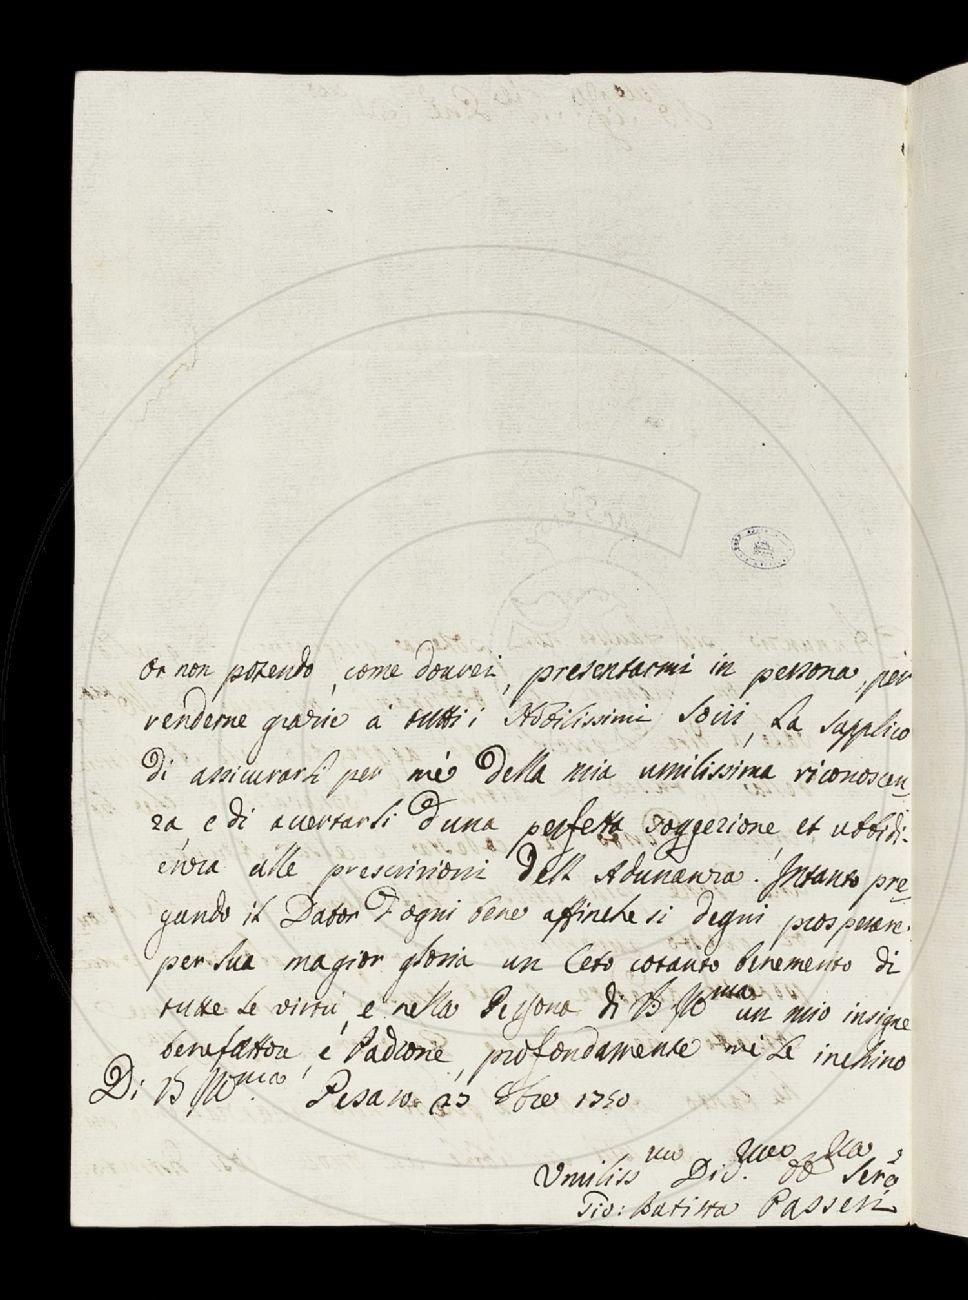 Or non potendo, come dovrei, presentarmi in persona, per
renderne grazie a tutti i Nobilissimi Socii, La supplico
di assicurarli per mé della mia umilissima riconoscen-
za e di accertarli d'una perfetta soggezione, et ubbidi-
enza alle prescrizioni dell'Adunanza. Intanto pre-
gando il Dator d'ogni bene affinche si degni prosperare
per sua magior gloria un Ceto cotanto benemerito di
tutte le virtú, e nella Persona di V S Ill.ma un mio insigne
benefattor, é Padrone profondamente mé Le inchino
Di V S Ill.ma Pesaro 27 1750
Umiliss.mo Div. ed Serv.e
Gio: Batista Passeri